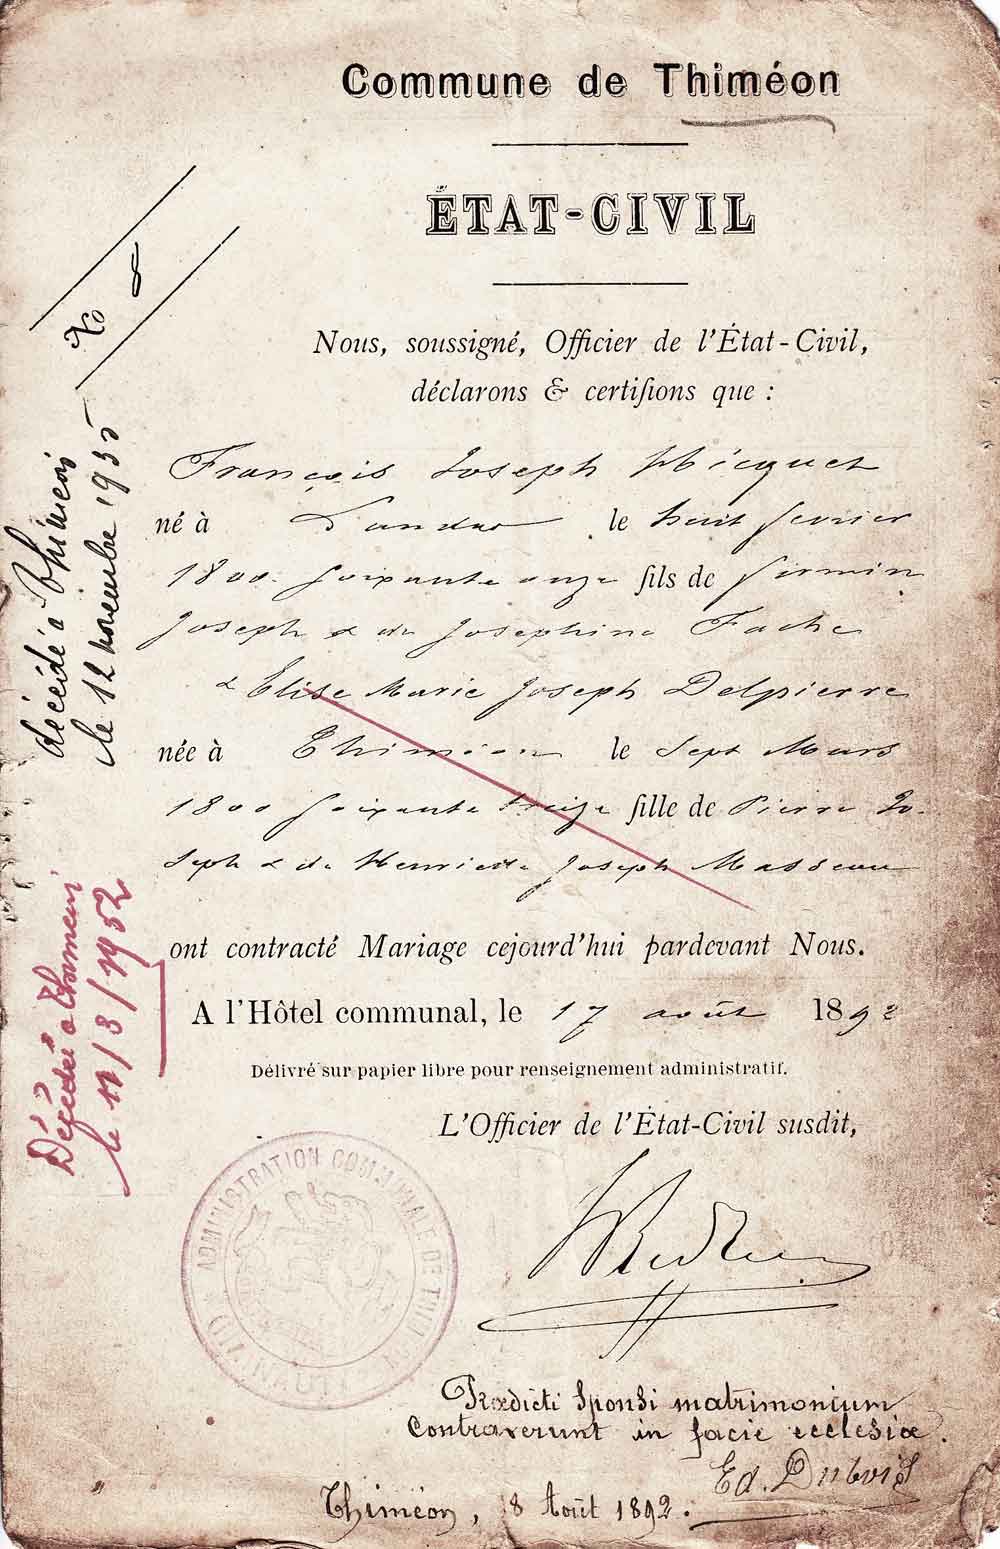 Commune de Thiméon
ÉTAT-CIVIL
No 8
Nous, soussigné, Officier de l'État-Civil,
déclarons & certifions que :
François Joseph Hicquet
né à le huit fevrier
1800 soixante onze fils de Firmin
Joseph & de Josephine Fache
& Elise Marie Joseph Delpierre
née à Thiméon le Sept Mars
1800 soixante treize fille de Pierre Jo-
seph & de Henriette Joseph Masseau
ont contracté Mariage cejourd'hui pardevant Nous.
A l'Hôtel communal, le 17 août 1892
Délivré sur papier libre pour renseignement administratif.
L'Officier de l'État-Civil susdit,
ADMINISTRATION COMMUNALE DE
Prædicti Sponsi matrimonium
Contraxerunt in facie ecclesiæ.
Ed. Dubois
Thiméon, 8 Août 1892.
décédé à Thiméon
le 12 novembre 1935
Décédé à
le 11/3/1952